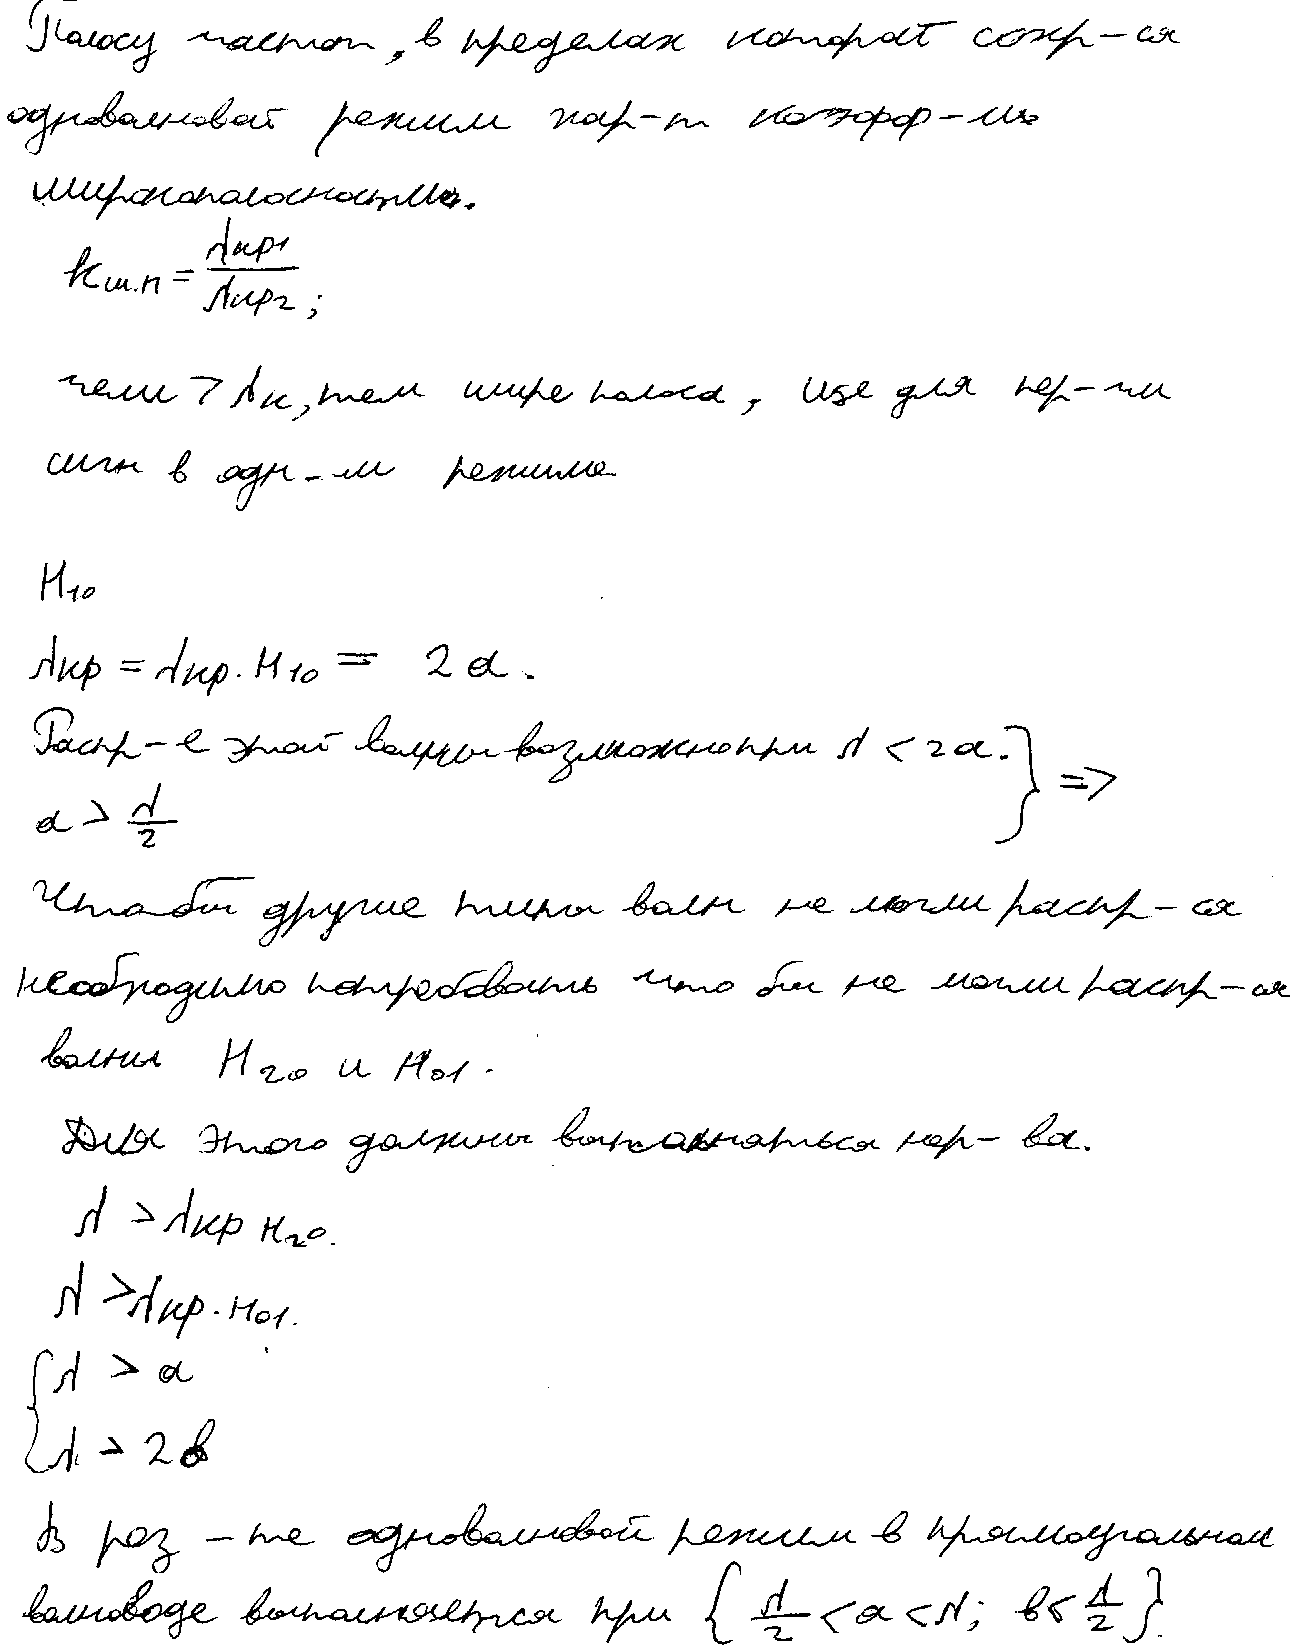 Полосу частот, в пределах которой сохр-ся
одноволновой режим хар-т коэфф-ть
широкополосности.
kш.п = λкр1 / λкр2;
чем > λк, тем шире полоса, исп для пер-чи
сигн в одн-м режиме
H10
λкр = λкр.H10 = 2a.
Распр-е этой волны возможно при λ < 2a. } =>
a > λ/2
Чтобы другие типы волн не могли распр-ся
необходимо потребовать что бы не могли распр-ся
волны H20 и H01.
Для этого должны выполняться нер-ва.
λ > λкр H20.
λ > λкр.H01.
{ λ > a
λ > 2в
В рез-те одноволновой режим в прямоугольном
волноводе выполняется при { λ/2 < a < λ; в < λ/2 }.